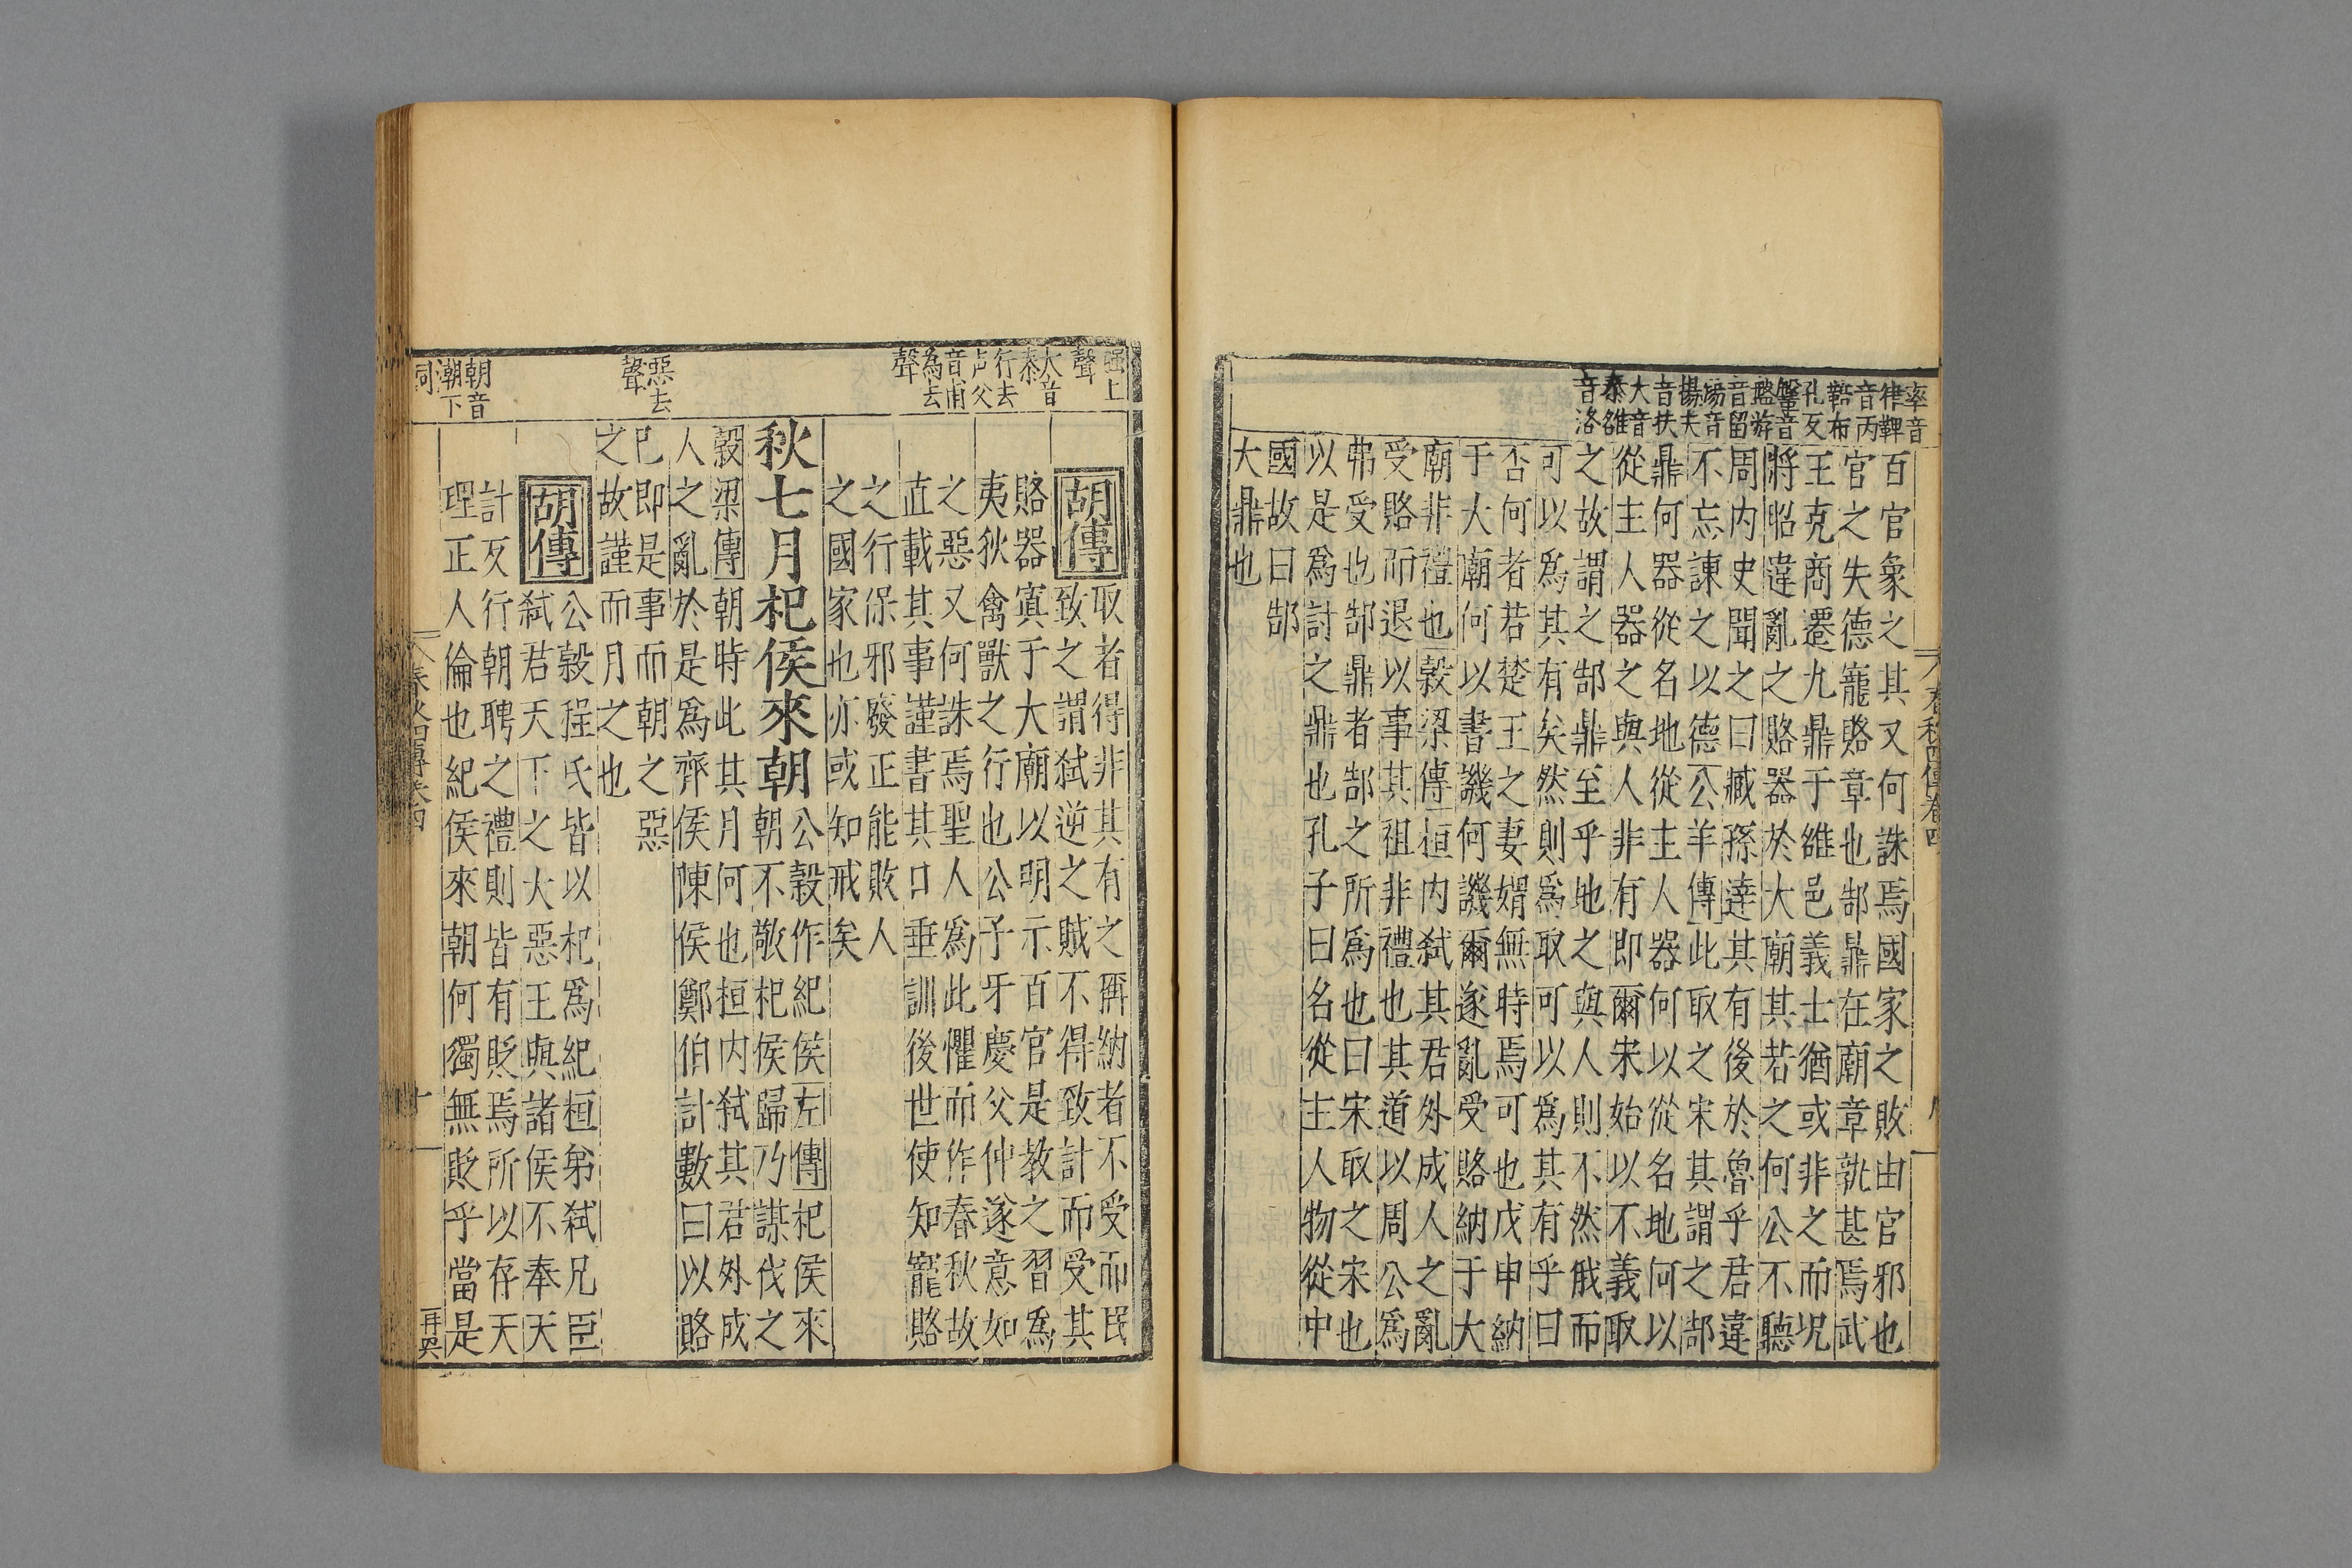 率音
律鞞
音丙
鞛布
孔反
鞶音
盤游
音留
鍚音
揚夫
音扶
大音
泰雒
音洛
百官象之其又何誅焉國家之敗由官邪也
官之失德寵賂章也郜鼎在廟章孰甚焉武
王克商遷九鼎于雒邑義士猶或非之而況
將昭違亂之賂器於大廟其若之何公不聽
周內史聞之曰臧孫達其有後於魯乎君違
不忘諫之以德公羊傳此取之宋其謂之郜
鼎何器從名地從主人器何以從名地何以
從主人器之與人非有即爾宋始以不義取
之故謂之郜鼎至乎地之與人則不然俄而
可以為其有矣然則為取可以為其有乎曰
否何者若楚王之妻媦無時焉可也戊申納
于大廟何以書譏何譏爾遂亂受賂納于大
廟非禮也穀梁傳桓內弒其君外成人之亂
受賂而退以事其祖非禮也其道以周公為
弗受也郜鼎者郜之所為也曰宋取之宋也
以是為討之鼎也孔子曰名從主人物從中
國故曰郜
大鼎也
春秋四傳卷四
强上
聲
大音
泰
行去
声父
音甫
為去
聲
惡去
聲
朝音
潮下
同
胡傳
取者得非其有之稱納者不受而民
致之謂弒逆之賊不得致討而受其
賂器寘于大廟以明示百官是教之習為
夷狄禽獸之行也公子牙慶父仲遂意如
之惡又何誅焉聖人為此懼而作春秋故
直載其事謹書其日垂訓後世使知寵賂
之行保邪廢正能敗人
之國家也亦或知戒矣
秋七月杞侯來朝
公穀作紀侯左傳杞侯來
朝不敬杞侯歸乃謀伐之
穀梁傳朝時此其月何也桓內弒其君外成
人之亂於是為齊侯陳侯鄭伯計數日以賂
已即是事而朝之惡
之故謹而月之也
胡傳
公穀程氏皆以杞為紀桓弟弒兄臣
弒君天下之大惡王與諸侯不奉天
討反行朝聘之禮則皆有貶焉所以存天
理正人倫也紀侯來朝何獨無貶乎當是
春秋四傳卷四
十一